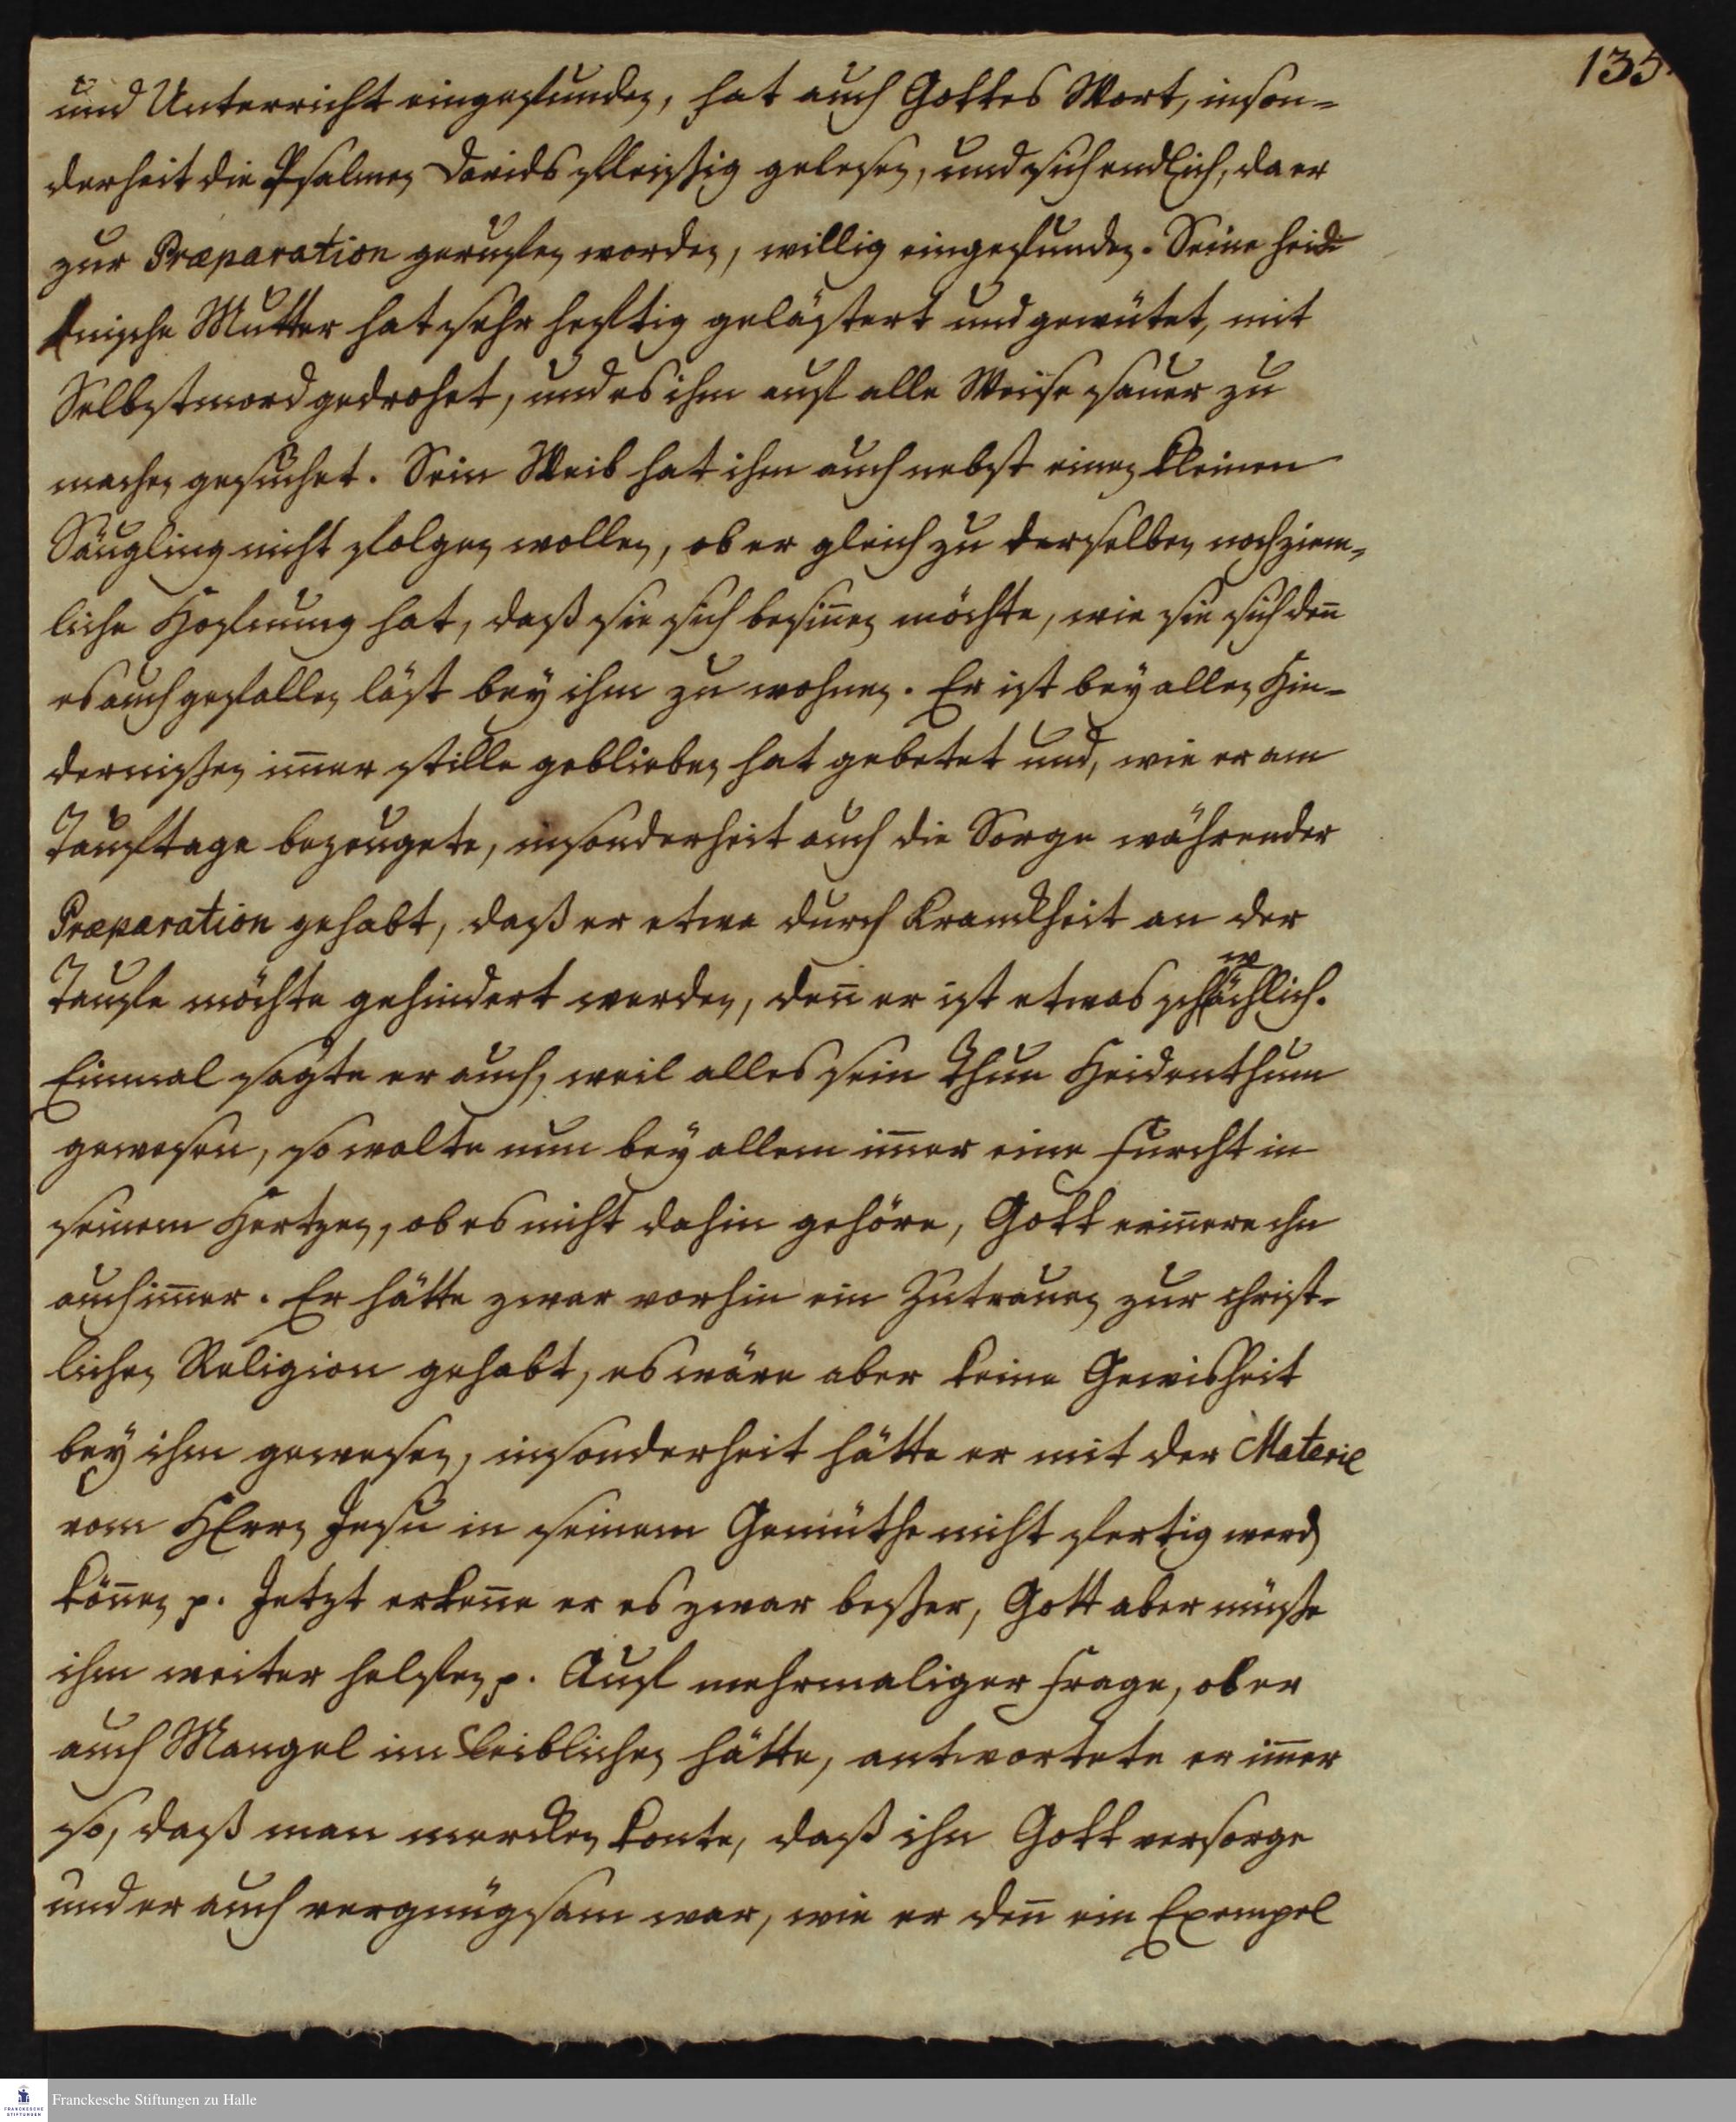 135.
und Unterricht eingefunden, hat auch Gottes Wort, inson-
derheit die Psalmen Davids fleißig gelesen, und sich endlich, da er
zur Præparation geruffen worden, willig eingefunden. Seine heid
nische Mutter hat sehr hefftig gelästert und gewütet, mit
Selbstmord gedrohet, und es ihm auf alle Weise sauer zu
machen gesuchet. Sein Weib hat ihm auch nebst einen kleinen
Säugling nicht folgen wollen, ob er gleich zu derselben noch ziem-
liche Hofnung hat, daß sie sich besiñen möchte, wie sie sich deñ
es auch gefallen läst bey ihm zu wohnen. Er ist bey allen Hin-
dernißen im̄er stille geblieben, hat gebetet und, wie er am
Tauftage bezeugete, insonderheit auch die Sorge währender
Præparation gehabt, daß er etwa durch Kranckheit an der
Taufe möchte gehindert werden, deñ er ist etwas schwächlich.
Einmal sagte er auch, weil alles sein Thun Heidenthum
gewesen, so wolte nun bey allem im̄er eine Furcht in
seinem Hertzen, ob es nicht dahin gehöre, Gott eriñere ihn
auch im̄er. Er hätte zwar vorhin ein Zutrauen zur christ-
lichen Religion gehabt, es wäre aber keine Gewisheit
bey ihm gewesen, insonderheit hätte er mit der Materie
vom HErrn Jesu in seinem Gemüthe nicht fertig werd
köñen p. Jetzt erkeñe er es zwar beßer, Gott aber müße
ihm weiter helffen p. Auf mehrmaliger Frage, ob er
auch Mangel im Leiblichen hätte, antwortete er im̄er
so, daß man mercken konte, daß ihn Gott versorge
und er auch vergnügsam war, wie er deñ ein Exempel
Franckesche Stiftungen zu Halle
FRANCKESCHE
STIFTUNGEN